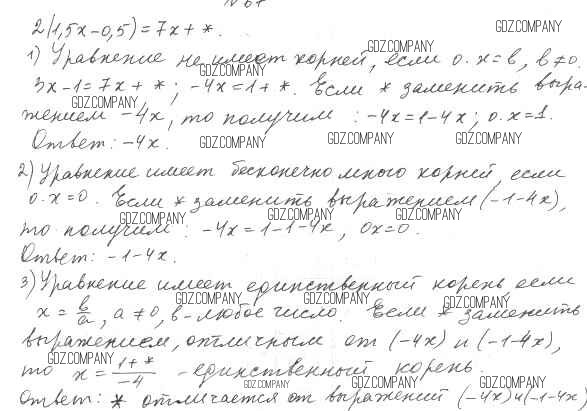 № 67
2(1,5x-0,5)=7x+*.
GDZ.COMPANY
GDZ.COMPANY
1) Уравнение не имеет корней, если 0·x=b, b≠0.
GDZ.COMPANY
3x-1=7x+*; -4x=1+*. Если * заменить выра-
GDZ.COMPANY
жением -4x, то получим: -4x=1-4x; 0·x=1.
Ответ: -4x.
GDZ.COMPANY GDZ.COMPANY GDZ.COMPANY
2) Уравнение имеет бесконечно много корней, если
0·x=0. Если * заменить выражением (-1-4x),
GDZ.COMPANY GDZ.COMPANY GDZ.COMPANY
то получим: -4x=1-1-4x, 0x=0.
Ответ: -1-4x.
3) Уравнение имеет единственный корень, если
GDZ.COMPANY GDZ.COMPANY GDZ.COMPANY
x=b/a, a≠0, b-любое число. Если * заменить
выражением, отличным от (-4x) и (-1-4x),
GDZ.COMPANY
то x=1+*/-4 - единственный корень.
GDZ.COMPANY GDZ.COMPANY GDZ.COMPANY
Ответ: * отличается от выражений (-4x) и (-1-4x)